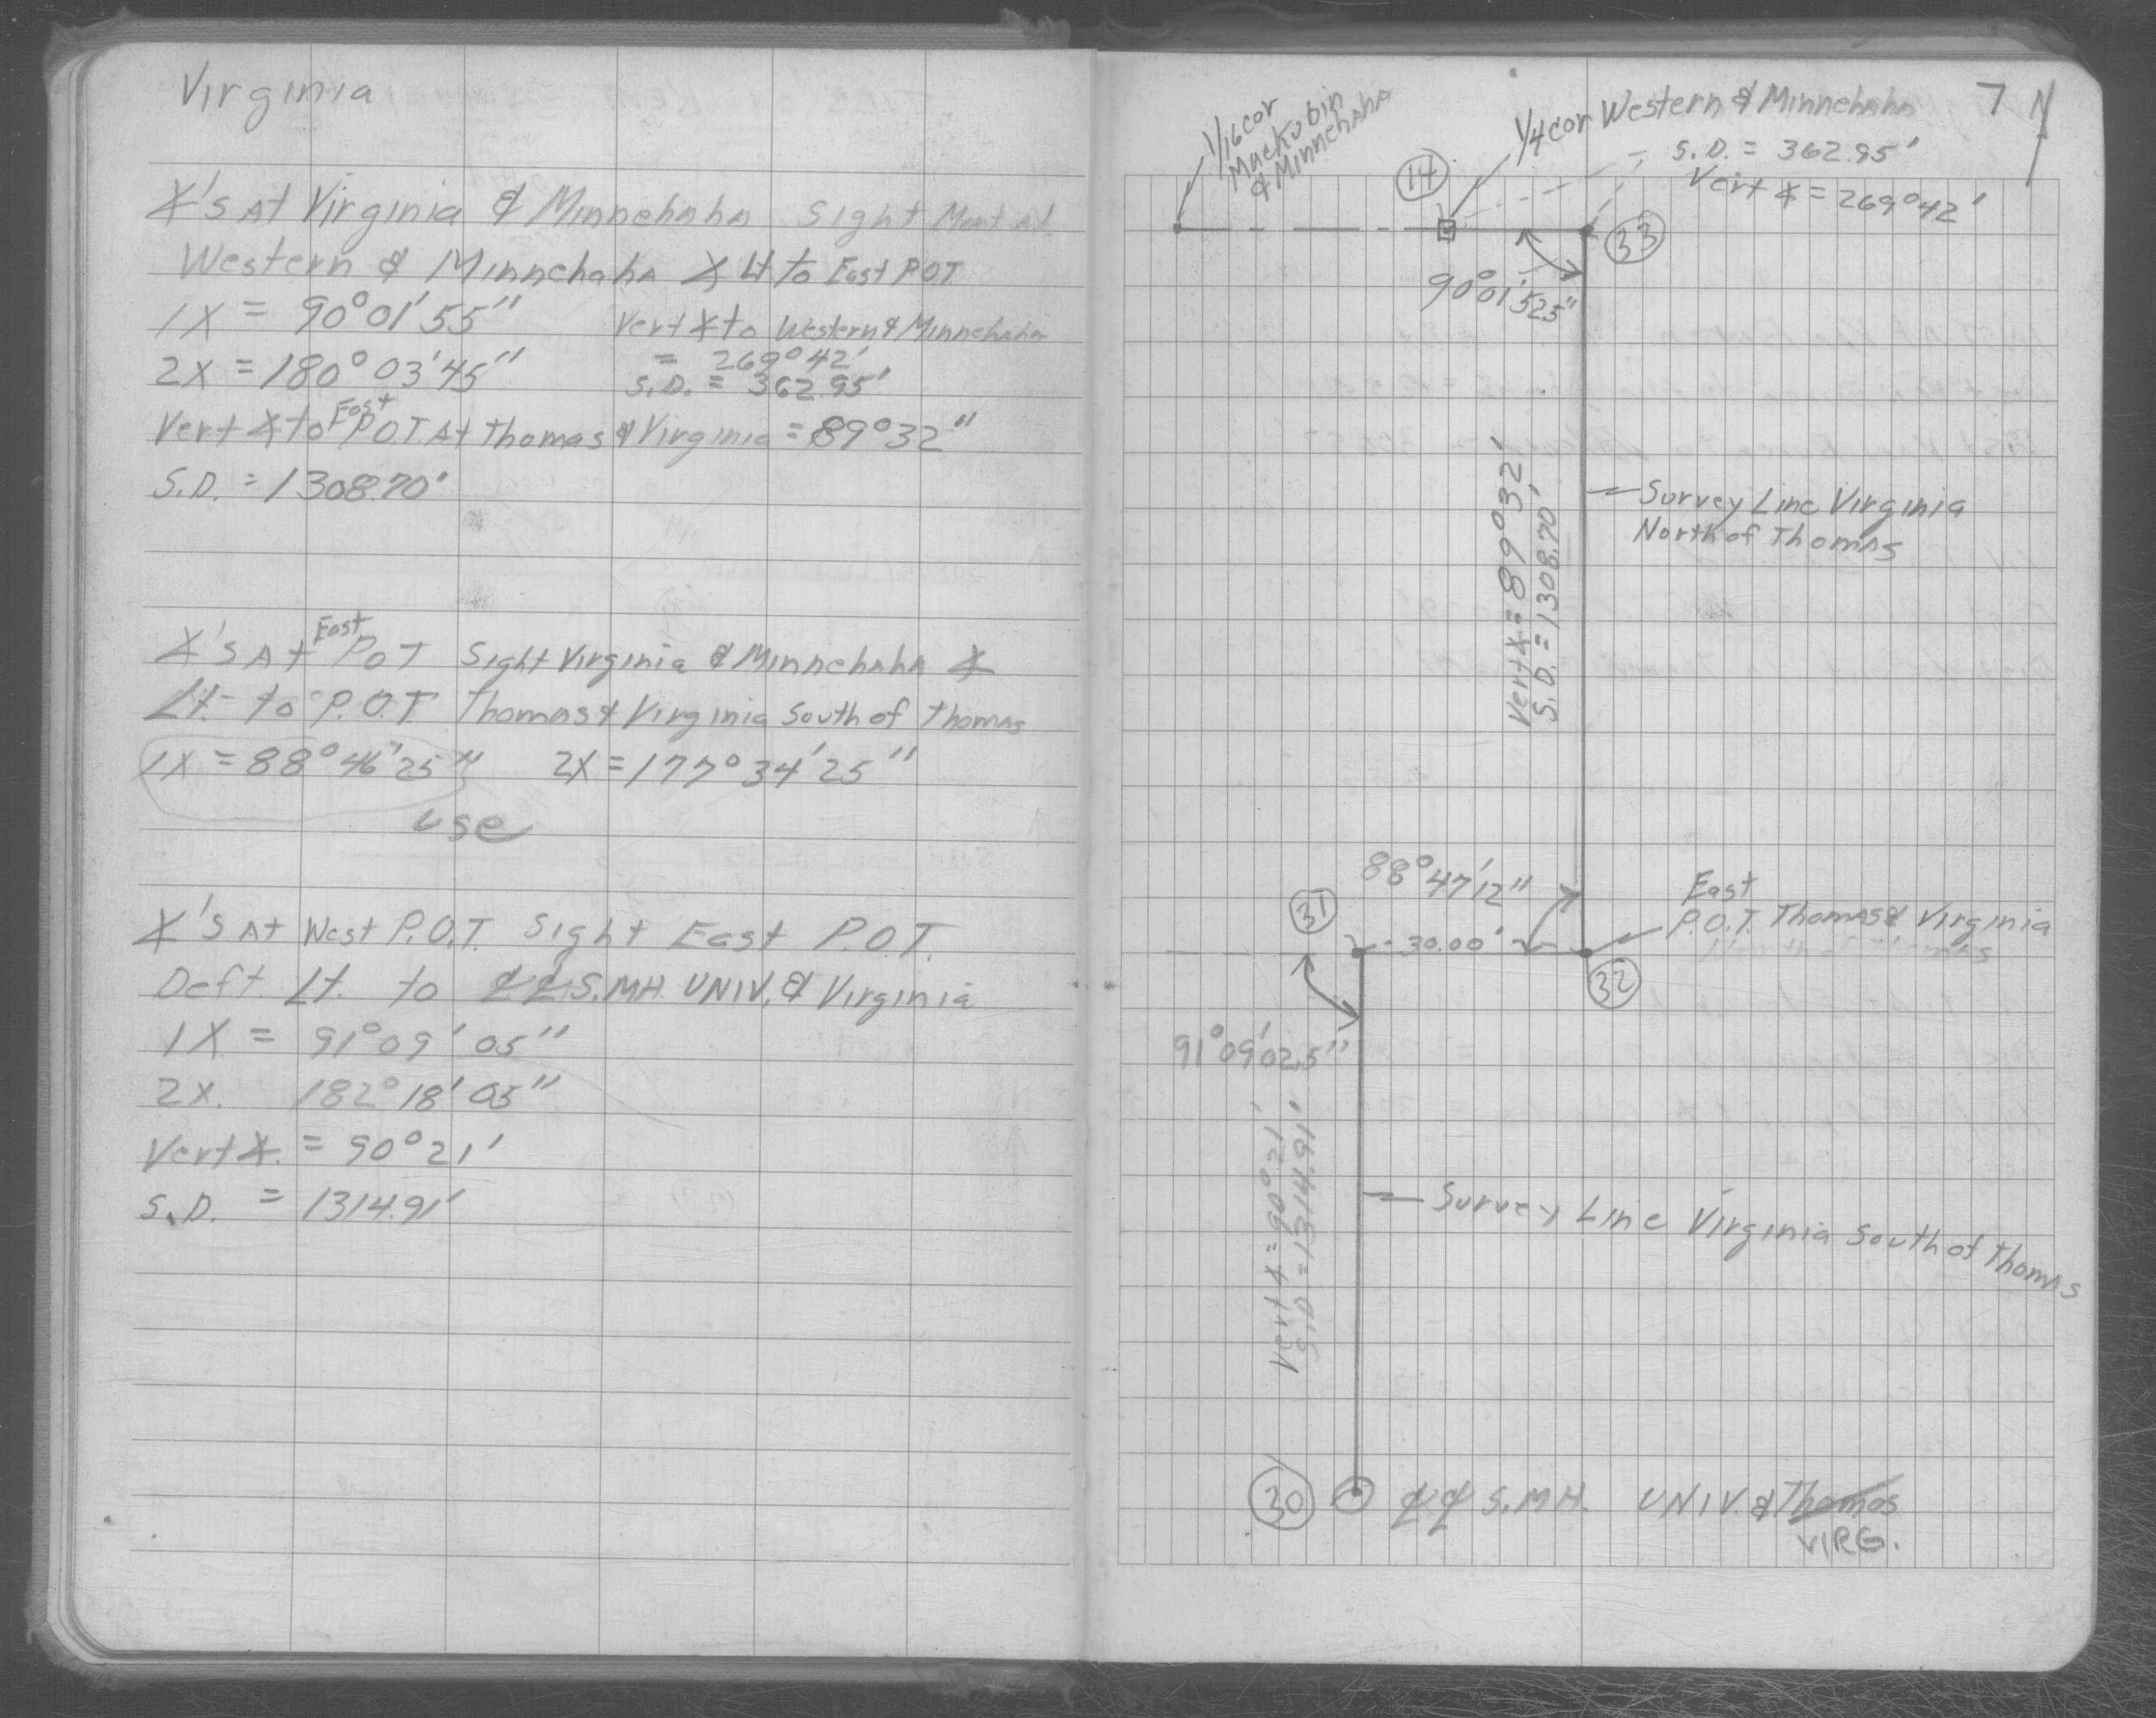 Virginia
∡'s At Virginia & Minnehaha Sight Mont At
Western & Minnehaha ∡ Lt to East P.O.T
1X = 90°01'55"
2X = 180°03'45"
Vert ∡ to Western & Minnehaha
= 269°42'
S.D. = 362.95'
Vert ∡ to East POT At Thomas & Virginia = 89°32"
S.D. = 1308.70'
∡'s At East POT Sight Virginia & Minnehaha ∡
Lt. to P.O.T Thomas & Virginia South of Thomas
1X = 88°46'25" 2X = 177°34'25"
use
∡'s At West P.O.T. Sight East P.O.T.
Defl. Lt. to ℄℄ S.MH. UNIV. & Virginia
1X = 91°09'05"
2X. 182°18'05"
Vert ∡. = 90°21'
S.D. = 1314.91'
7 N
1/16 cor
Mackubin
& Minnehaha
1/4 cor Western & Minnehaha
S.D. = 362.95'
Vert ∡ = 269°42'
14
33
90°01'52.5"
Vert ∡ = 89°32'
S.D. = 1308.70'
Survey Line Virginia
North of Thomas
88°47'12"
31
30.00'
East
P.O.T. Thomas & Virginia
32
91°09'02.5"
Vert ∡ = 90°21'
S.D. = 1314.91'
Survey Line Virginia South of Thomas
30
℄℄ S.M.H. UNIV. & Thomas
VIRG.